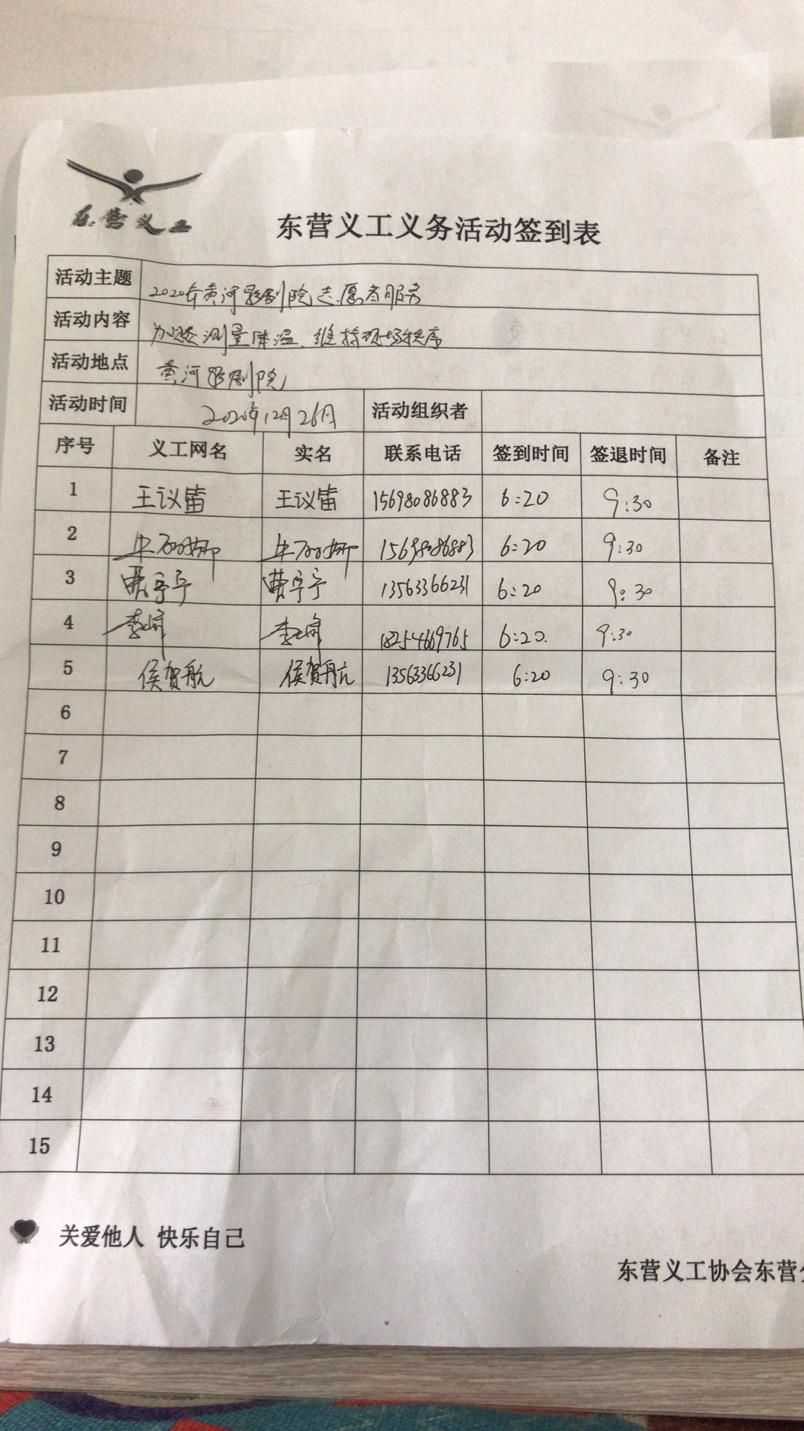 东营义工
东营义工义务活动签到表
活动主题 2020年黄河影剧院志愿者服务
活动内容 测量体温、维持现场秩序
活动地点 黄河影剧院
活动时间 2020年12月26日 活动组织者
序号 义工网名 实名 联系电话 签到时间 签退时间 备注
1 王议 王议 15698086883 6:20 9:30
2 15698086883 6:20 9:30
3 宇宁 曹宇宁 13563366231 6:20 9:30
4 李 李 18254669765 6:20. 9:30
5 侯贺航 侯贺航 13563366231 6:20 9:30
6
7
8
9
10
11
12
13
14
15
关爱他人 快乐自己
东营义工协会东营